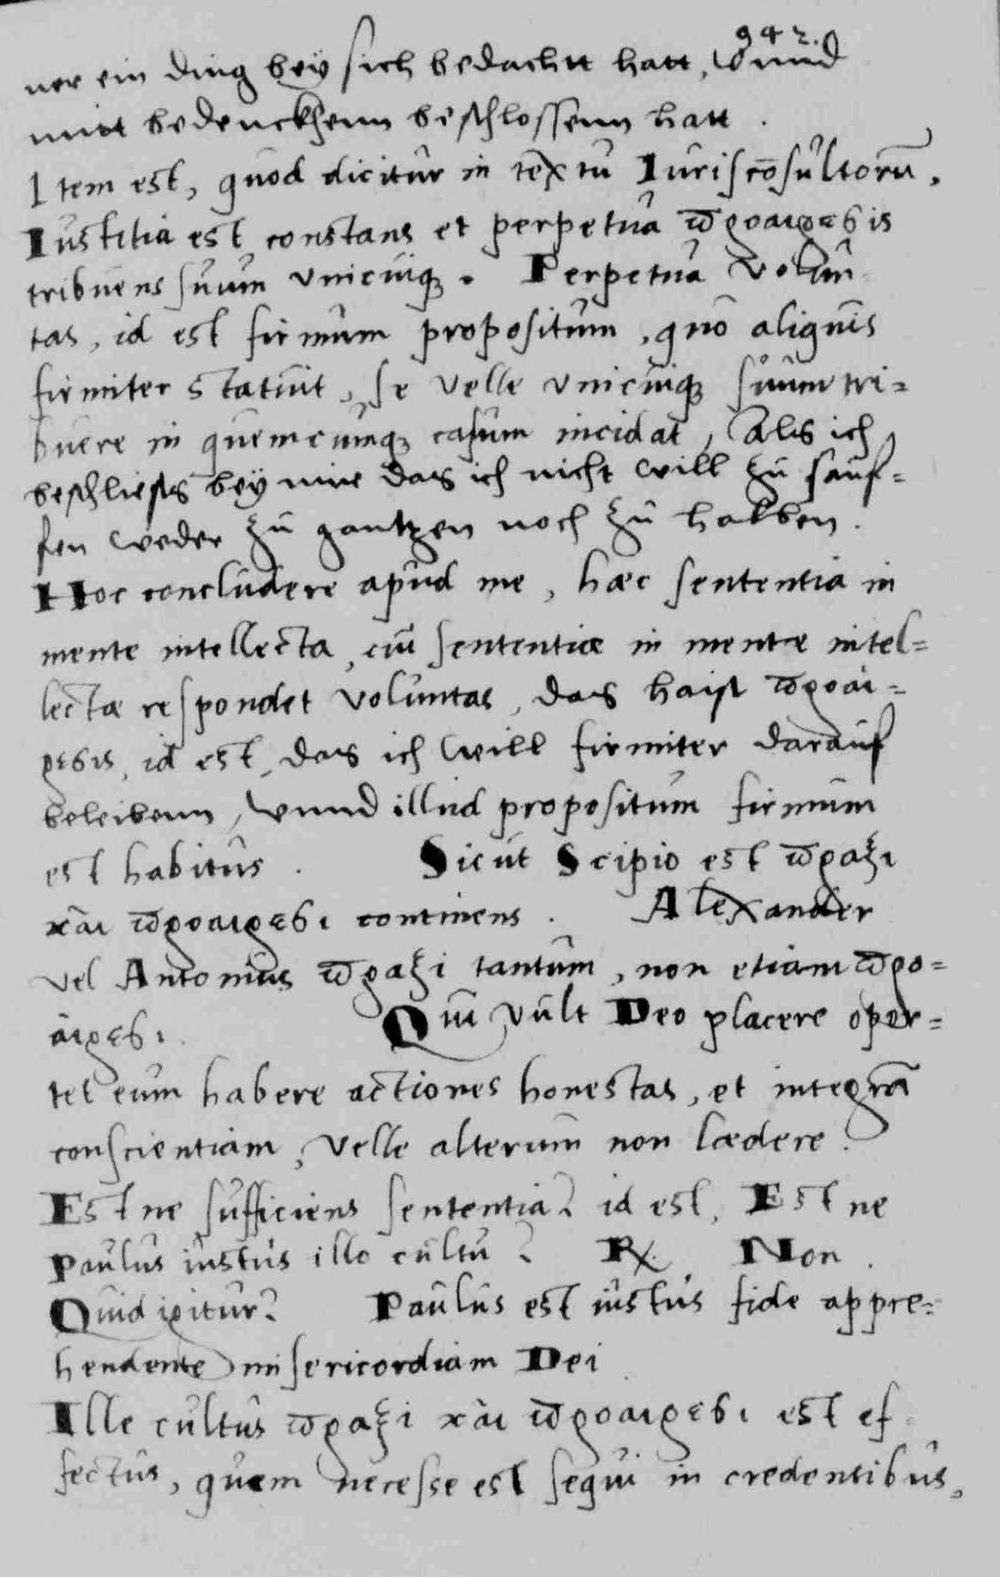 942.
ner ein ding bey sich bedachtt hatt, vnnd
mitt bedenckhenn beschlossenn hatt .
Item est, quod dicitur in textu Iuriscōsultorū,
Iustitia est constans et perpetua προαιρεσις
tribuens suum vnicuiq₃ . Perpetua volun
tas, id est firmum propositum, quo aliquis
firmiter statuit, se velle vnicuiq₃ suum tri=
buere in quemcumq₃ casum incidat, Als ich
beschliess bey mir das ich nicht will zu sauf=
fen weder zu gantzen noch zu halben.
Hoc concludere apud me, hæc sententia in
mente intellecta, cui sententiæ in mente intel=
lectæ respondet voluntas, das haist προαι=
ρεσις, id est, das ich will firmiter darauf
beleibenn, vnnd illud propositum firmum
est habitus . Sicut Scipio est πραξι
και προαιρεσι continens . Alexander
vel Antonius πραξι tantum, non etiam προ=
αιρεσι. Qui vult Deo placere opor=
tet eum habere actiones honestas, et integrā
conscientiam, velle alterum non lædere.
Est ne sufficiens sententia? id est, Est ne
Paulus iustus illo cultu? R. Non .
Quid igitur? Paulus est iustus fide appre=
hendente misericordiam Dei
Ille cultus πραξι και προαιρεσι est ef=
fectus, quem necesse est sequi in credentibus,